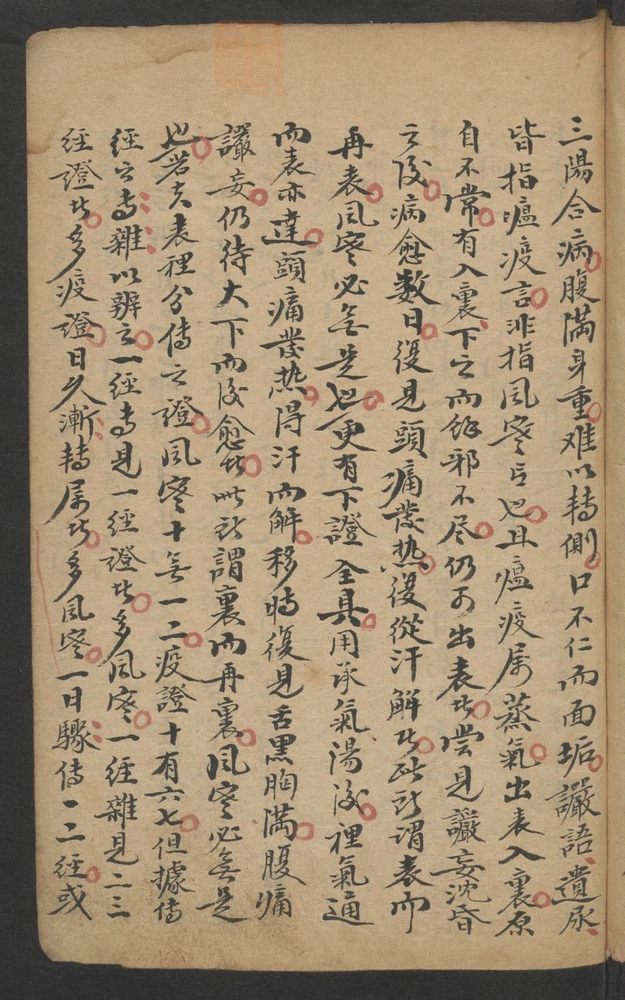 三陽合病腹滿身重难以轉側口不仁而面垢讝語遺尿
皆指瘟疫言非指風寒言也且瘟疫属蒸氣出表入裏原
自不常有入裏下之而餘邪不尽仍可出表者嘗見讝妄沈昏
之后病愈数日復見頭痛發热復從汗解者此所謂表而
再表風寒必無是也更有下證全具用承氣湯後裡氣通
而表亦達頭痛發热得汗而解移時復見舌黑胸满腹痛
讝妄仍待大下而後愈者此所謂裏而再裏風寒必無是
也若夫表裡分傳之證風寒十無一二疫證十有六七但據傳
經之專雜以辨之一經專見一經證者多風寒一經雜見二三
經證者多疫證日久漸轉属者多風寒一日驟傳一二經或